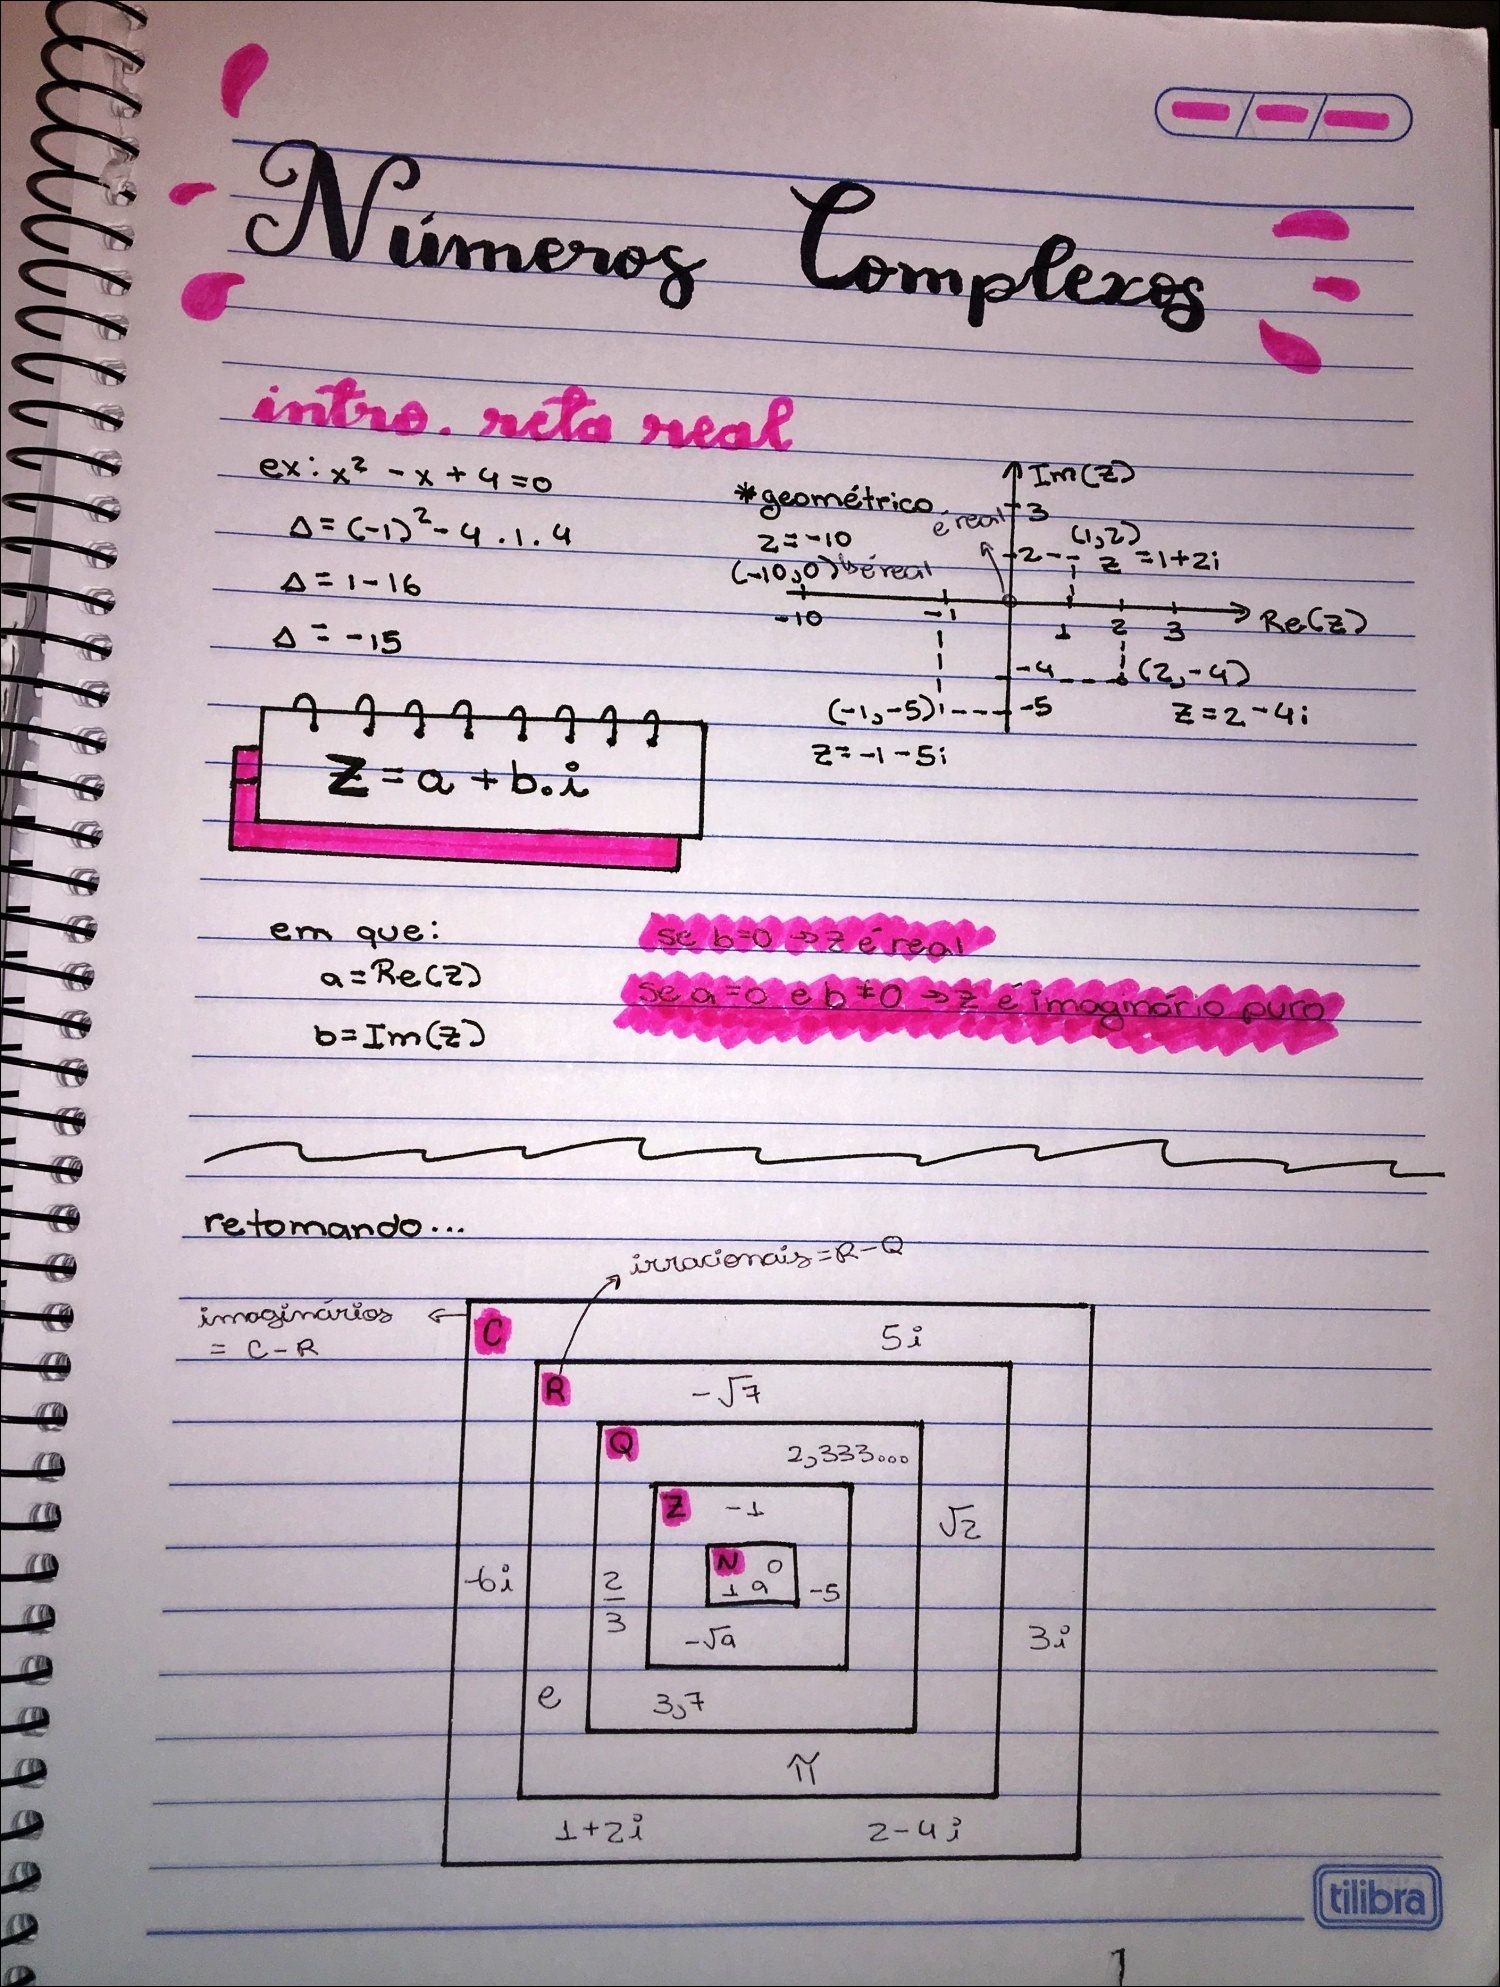 Números Complexos
intro. reta real
ex: x² - x + 4 = 0
Δ = (-1)² - 4 . 1 . 4
Δ = 1 - 16
Δ = -15
*geométrico
z = -10
(-10,0) é real
é real
Im(Z)
3
(1,2)
2
z = 1+2i
-10
-1
1 2 3
Re(Z)
-4
(2,-4)
(-1,-5)
-5
Z = 2 - 4i
Z = -1 - 5i
Z = a + b.i
em que:
a = Re(Z)
b = Im(Z)
se b=0 → z é real
se a=0 e b≠0 → z é imaginário puro
retomando...
irracionais = R - Q
imaginários
= C - R
C
5i
R
-√7
Q
2,333...
Z
-1
√2
N 0
1 9
-5
-6i
2/3
-√9
3i
e
3,7
π
1+2i
2-4i
tilibra
1